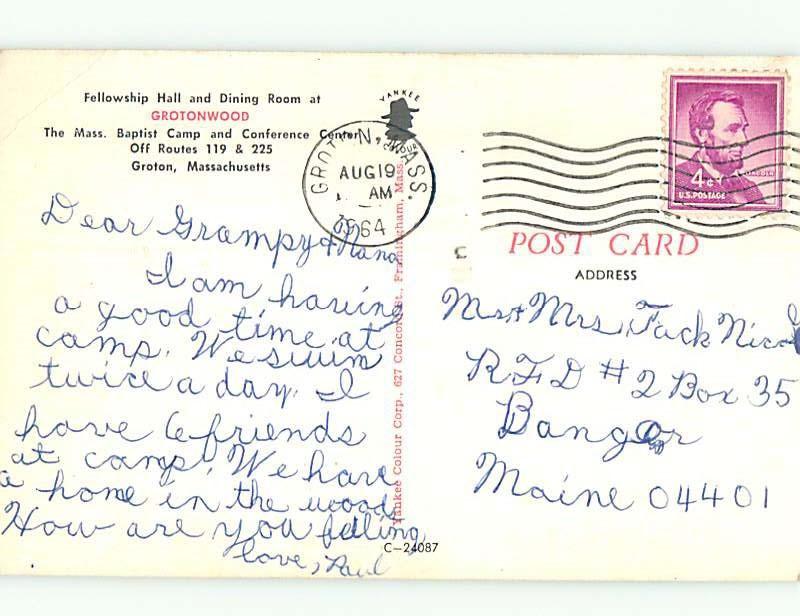 Fellowship Hall and Dining Room at
GROTONWOOD
The Mass. Baptist Camp and Conference Center
Off Routes 119 & 225
Groton, Massachusetts
YANKEE
COLOUR
GROTON, MASS.
AUG 19
AM
1964
4¢
LINCOLN
U.S. POSTAGE
POST CARD
ADDRESS
Dear Grampy & Nana
I am having
a good time at
camp. We swim
twice a day. I
have 6 friends
at camp. We have
a home in the woods
How are you felling
love, Paul
Mr + Mrs Jack
RFD #2 Box 35
Bangor
Maine 04401
Yankee Colour Corp., 627 Concord St., Framingham, Mass.
C-24087